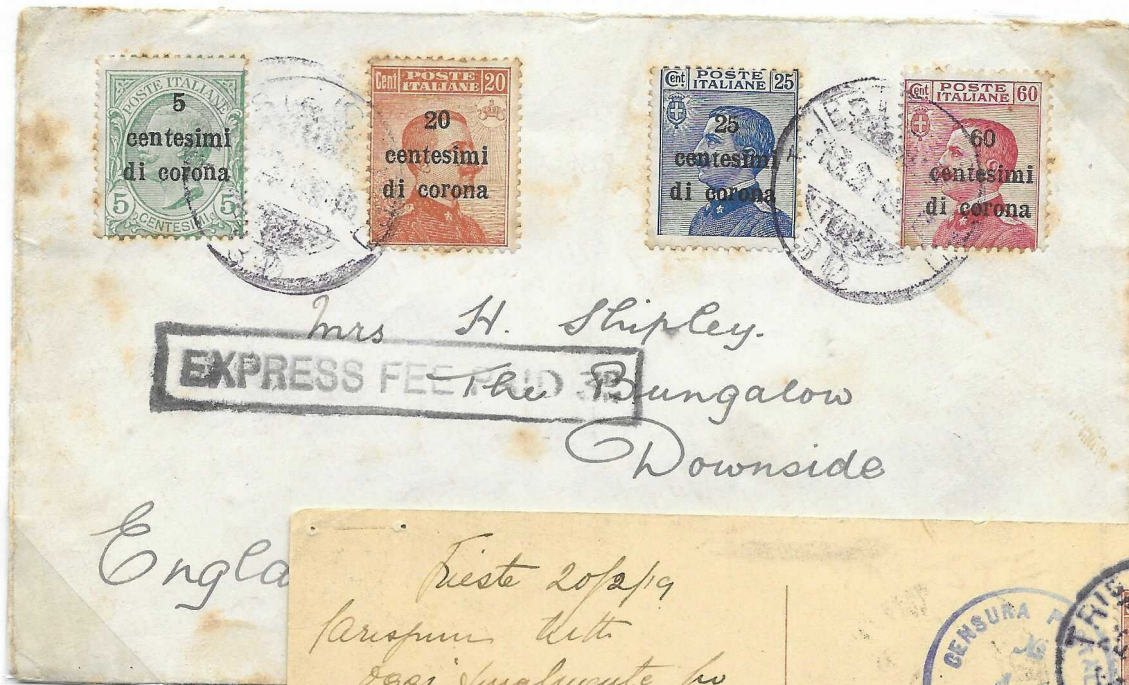 POSTE ITALIANE
5
centesimi
di corona
5 CENTESIMI 5
Cent POSTE ITALIANE 20
20
centesimi
di corona
Cent POSTE ITALIANE 25
25
centesimi
di corona
Cent POSTE ITALIANE 60
60
centesimi
di corona
Mrs H. Shipley.
EXPRESS FEE PAID 3D
The Bungalow
Downside
Engla
Trieste 20/2/19
oggi finalmente ho
CENSURA
TRIES